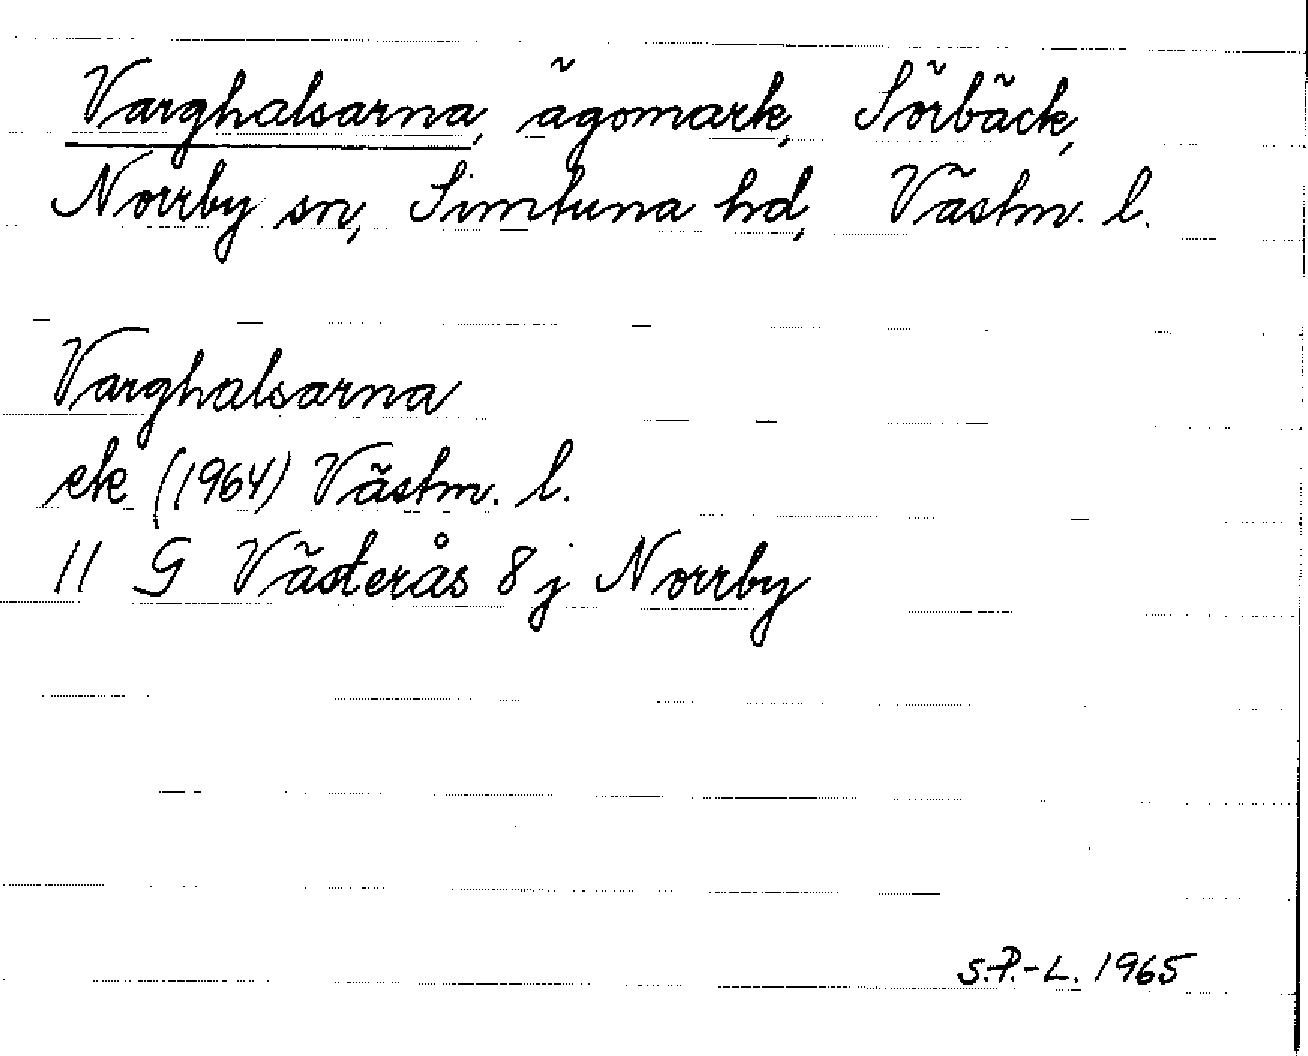 Varghalsarna, ägomark, Sörbäck,
Norrby sn, Simtuna hd, Västm. l.
Varghalsarna
ek (1964) Västm. l.
11 G Västerås 8 j Norrby
S.P.-L. 1965